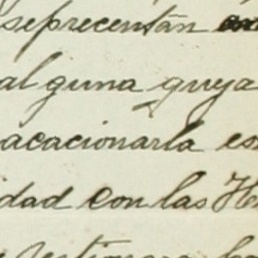 seprecentán
alguna guya
acacionarla es
idad con las He